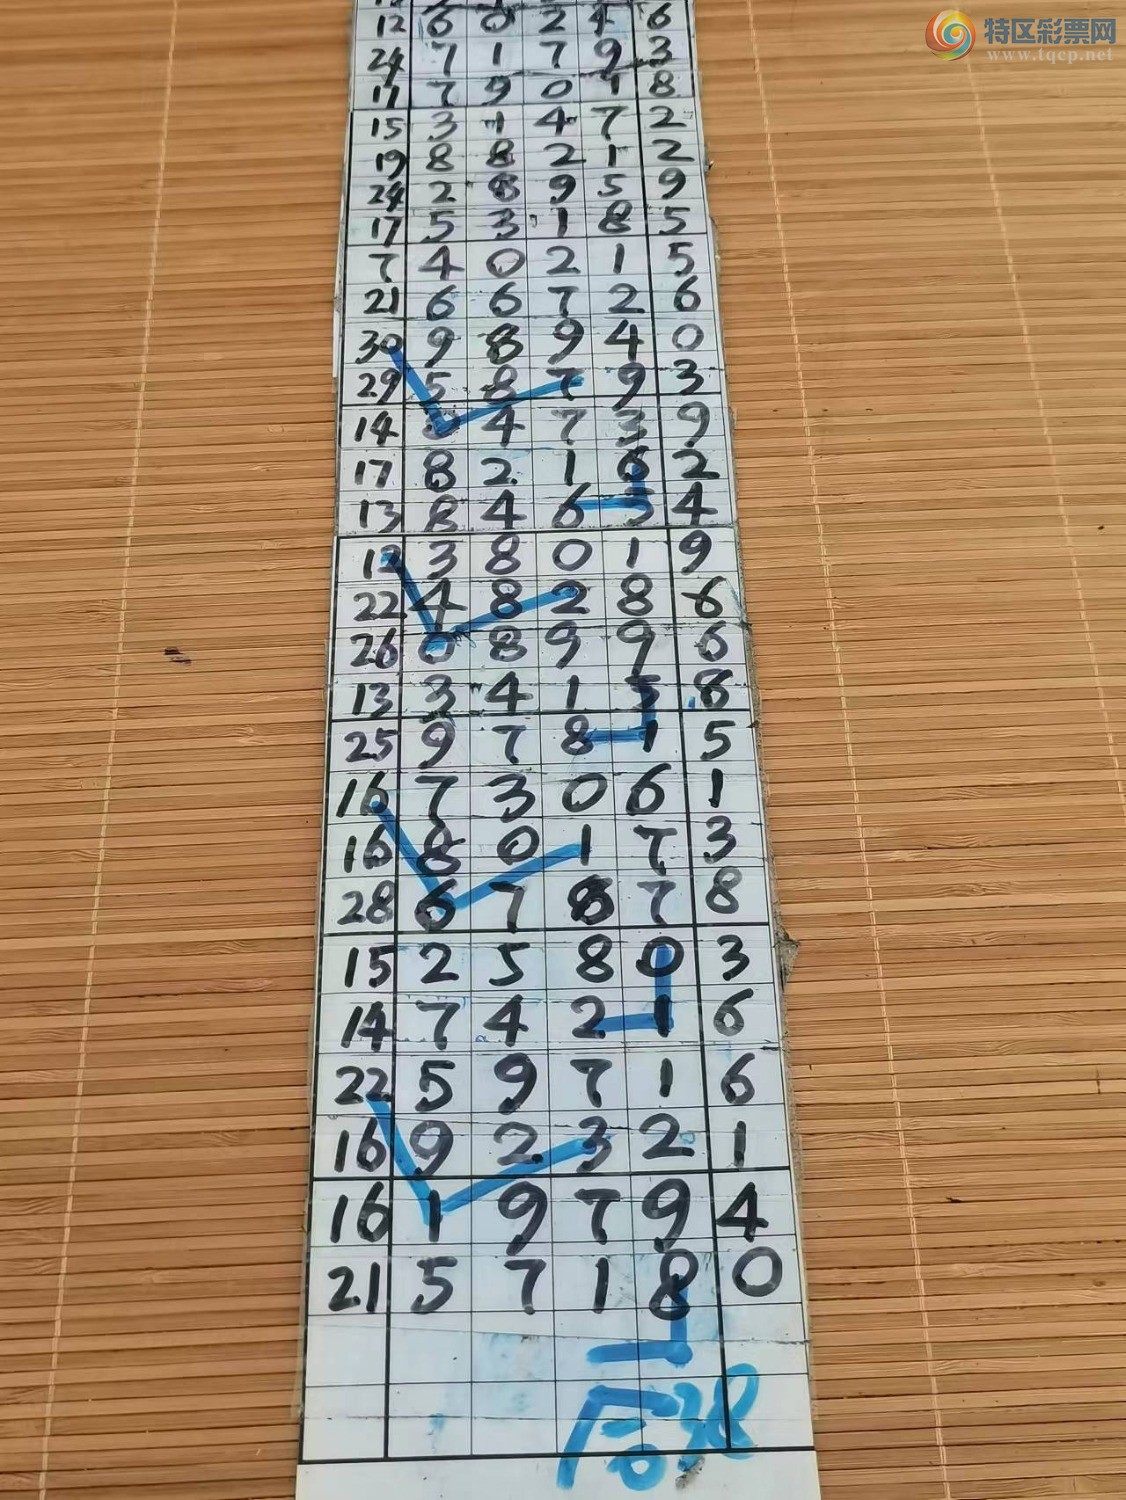 特区彩票网
www.tqcp.net
12 6 0 2 4 6
24 7 1 7 9 3
17 7 9 0 1 8
15 3 1 4 7 2
19 8 8 2 1 2
24 2 8 9 5 9
17 5 3 1 8 5
7 4 0 2 1 5
21 6 6 7 2 6
30 9 8 9 4 0
29 5 8 7 9 3
14 4 7 3 9
17 8 2 1 6 2
13 8 4 6 3 4
12 3 8 0 1 9
22 4 8 2 8 6
26 0 8 9 9 6
13 3 4 1 5 8
25 9 7 8 1 5
16 7 3 0 6 1
16 8 0 1 7 3
28 6 7 8 7 8
15 2 5 8 0 3
14 7 4 2 1 6
22 5 9 7 1 6
16 9 2 3 2 1
16 1 9 7 9 4
21 5 7 1 8 0
后